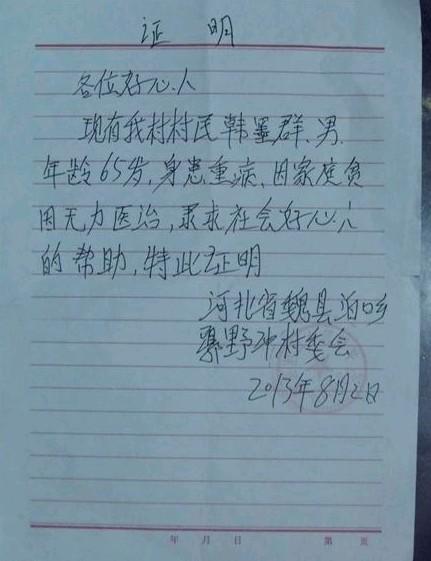 证 明
各位好心人
现有我村村民韩墨群,男,
年龄65岁,身患重病,因家庭贫
困无力医治,寻求社会好心人
的帮助,特此证明
河北省魏县泊口乡
野冲村委会
2013年8月2日
年 月 日 第 页